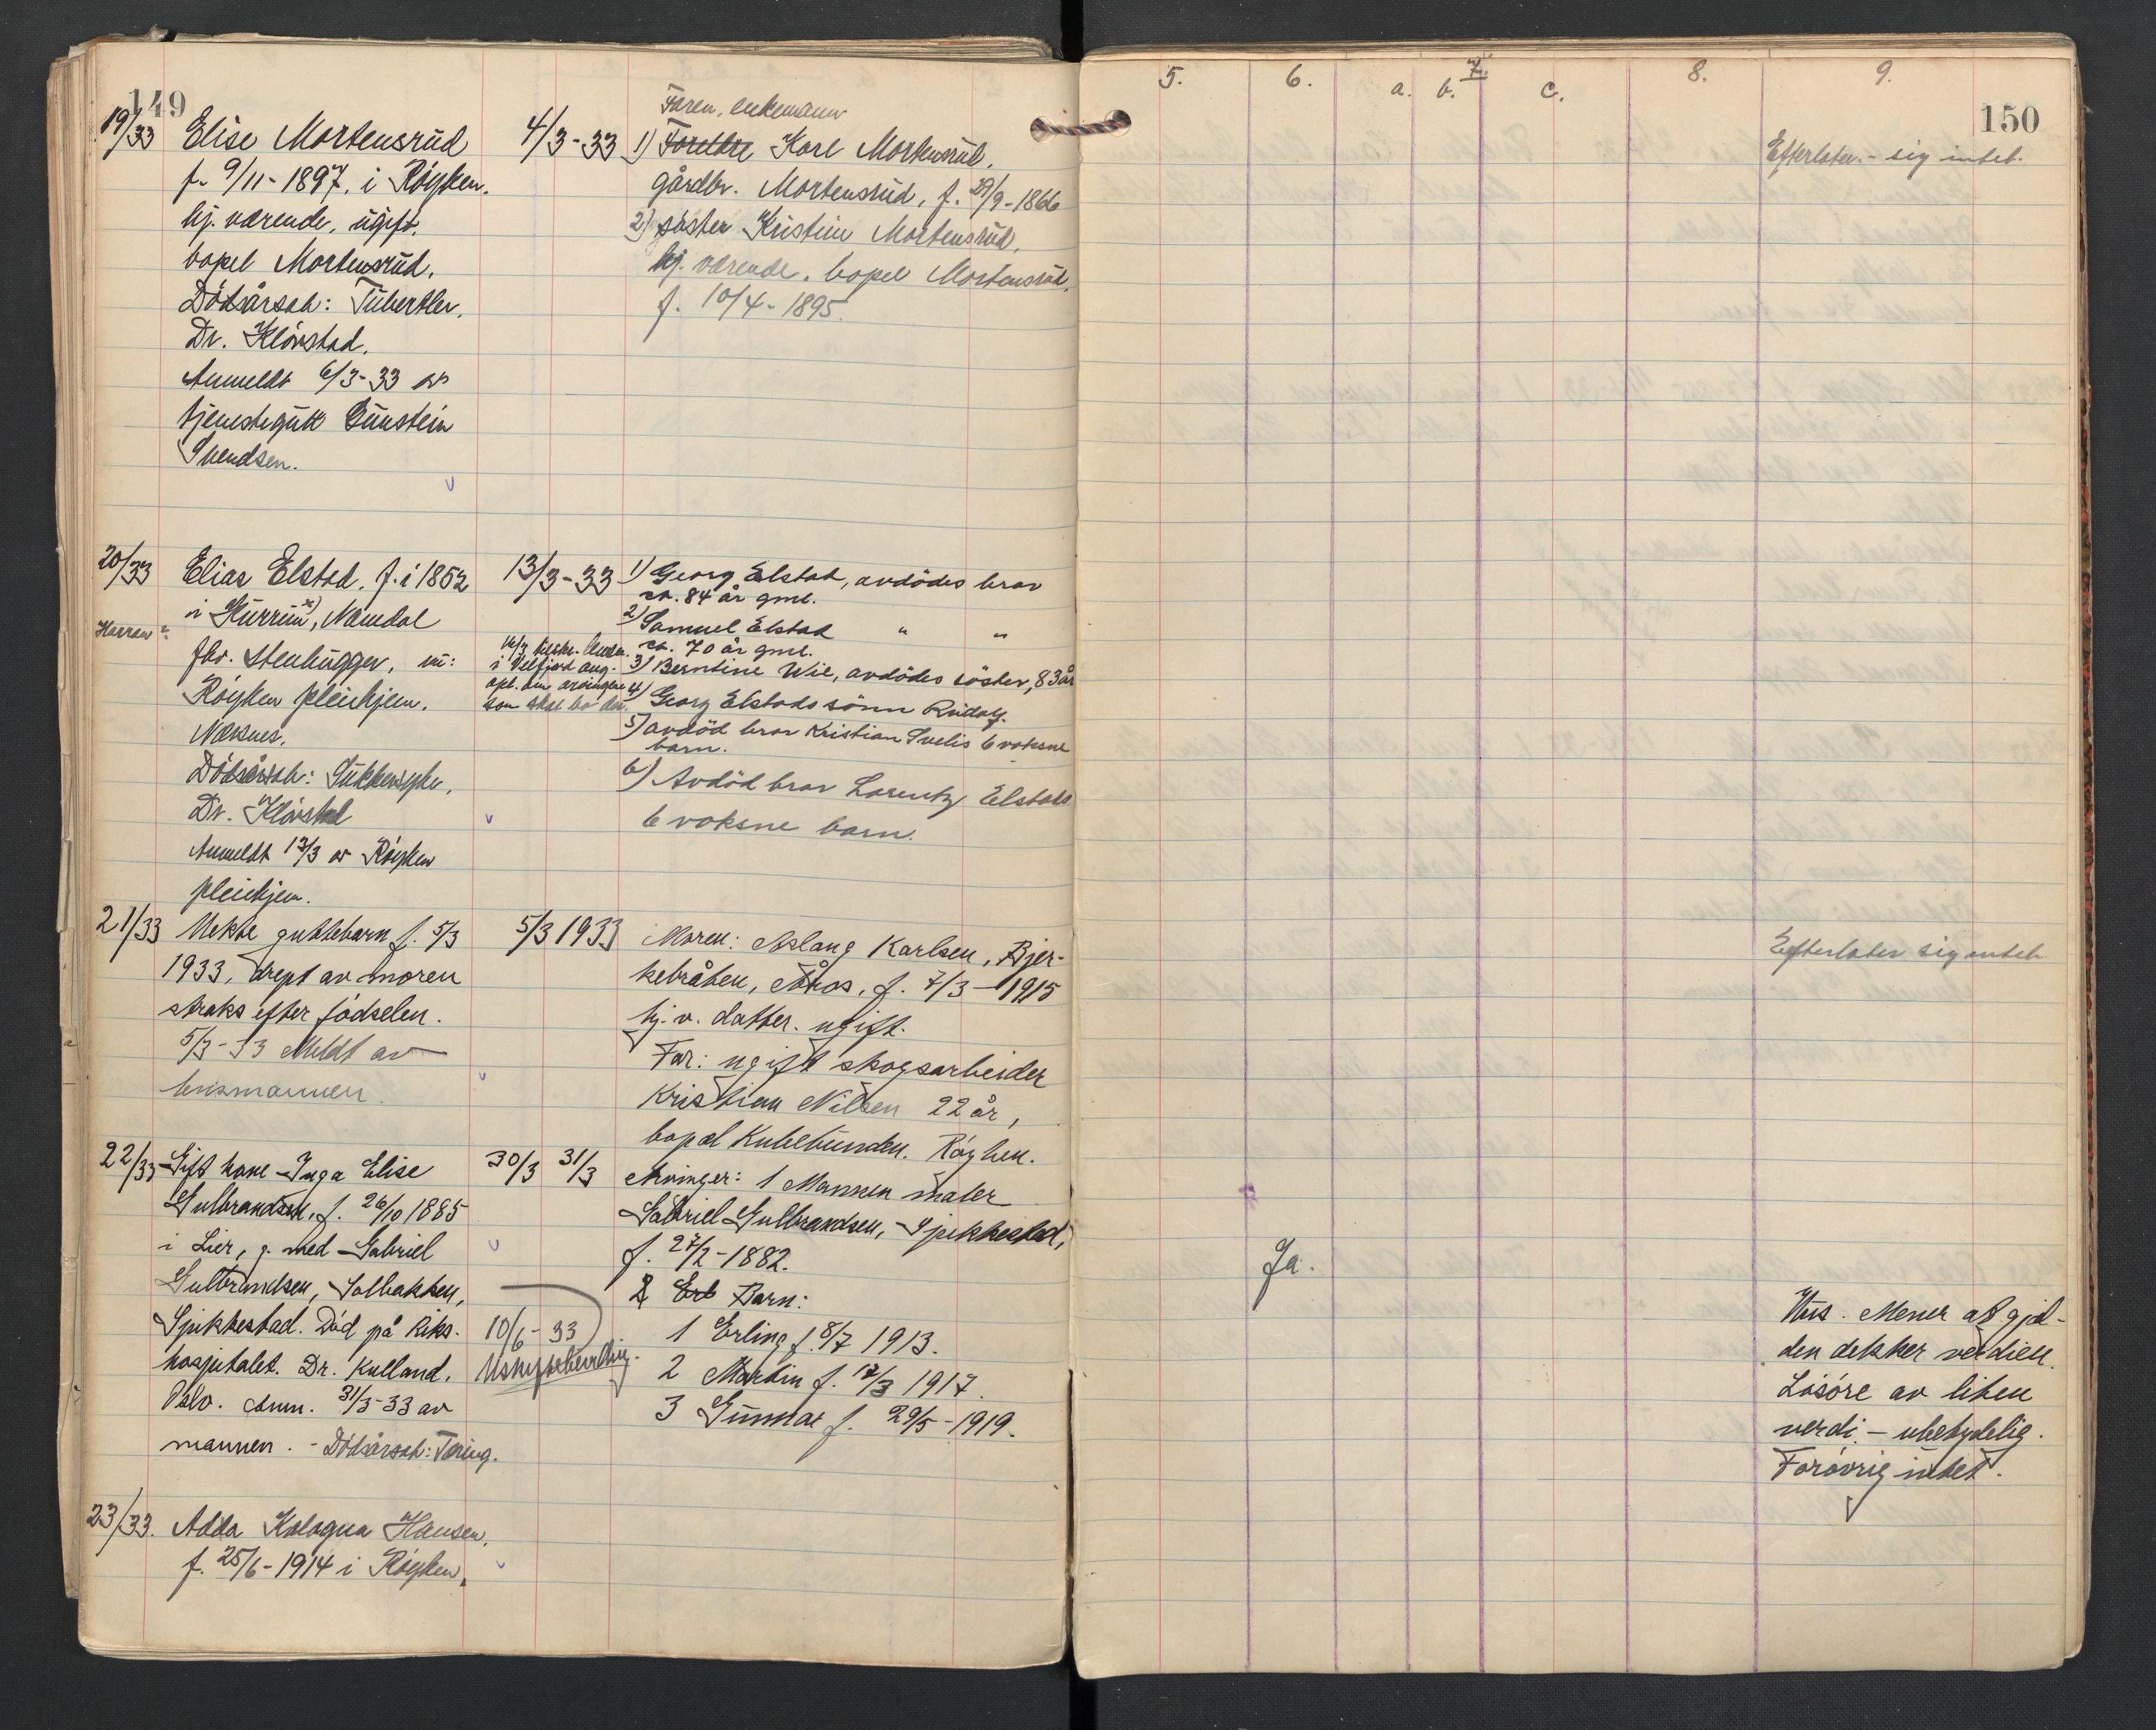 149
19/33 Elise Mortensrud
f. 9/11-1897, i Röyken.
hj. værende, ugift.
bopel Mortensrud.
Dödsårsak: Tuberkler.
Dr. Klövstad.
Anmeldt 6/3-33 av
tjenestegutt Gunstein
Svendsen.
4/3-33
Faren, enkemann
1) Foreldre Karl Mortensrud.
gårdbr. Mortensrud, f. 29/9-1866
2) söster Kristine Mortensrud,
hj. værende. bopel Mortensrud.
f. 10/4-1895.
20/33 Elias Elstad. f. i 1852
i Hurrim x), Namdal
Harran?
fhv. stenhugger, nu:
Röyken pleiehjem.
Næsnes.
Dödsårsak: Sukkersyke.
Dr. Klövstad
Anmeldt 13/3 av Röyken
pleiehjem.
13/3-33
16/3 tilskr. lensm.
i Velfjord ang.
opl. om arvingene
som skal bo der.
1) Georg Elstad, avdödes bror
ca. 84 år gml.
2) Samuel Elstad " "
ca. 70 år gml.
3) Berntine Wie, avdödes söster, 83 år
4) Georg Elstads sönn Rudolf.
5) avdöd bror Kristian Svelis 6 voksne
barn.
6) Avdöd bror Lorentz Elstads
6 voksne barn.
21/33 Uekte guttebarn f. 5/3
1933, drept av moren
straks efter födselen.
5/3-33 Meldt av
lensmannen.
5/3 1933
Moren: Aslaug Karlsen, Bjer-
kebråten, Åros, f. 7/3-1915
hj. v. datter. ugift.
Far: ugift skogsarbeider
Kristian Nilsen 22 år,
bopel Kulebunden. Röyken.
22/33 Gift kone Inga Elise
Gulbrandsen, f. 26/10 1885
i Lier, g. med Gabriel
Gulbrandsen, Solbakken,
Spikkestad. Död på Riks-
hospitalet. Dr. Kulland,
Oslo. Anm. 31/3-33 av
mannen. - Dödsårsak: Tæring.
30/3 31/3
10/6-33
Uskiftebevilling.
Arvinger: 1 Mannen maler
Gabriel Gulbrandsen, Spikkestad,
f. 27/2-1882.
2 Erb Barn:
1 Erling f. 8/7 1913.
2 Martin f. 17/3 1917.
3 Gunnar f. 29/5-1919.
23/33. Adda Kologna Hansen.
f. 25/6-1914 i Röyken.
5. 6. 7. 8. 9.
a. b. c.
150
Efterlater - sig intet.
Efterlater sig intet
Ja.
Hus. Mener at gjel-
den dekker verdien.
Lösöre av liten
verdi - ubetydelig.
Forövrig intet.